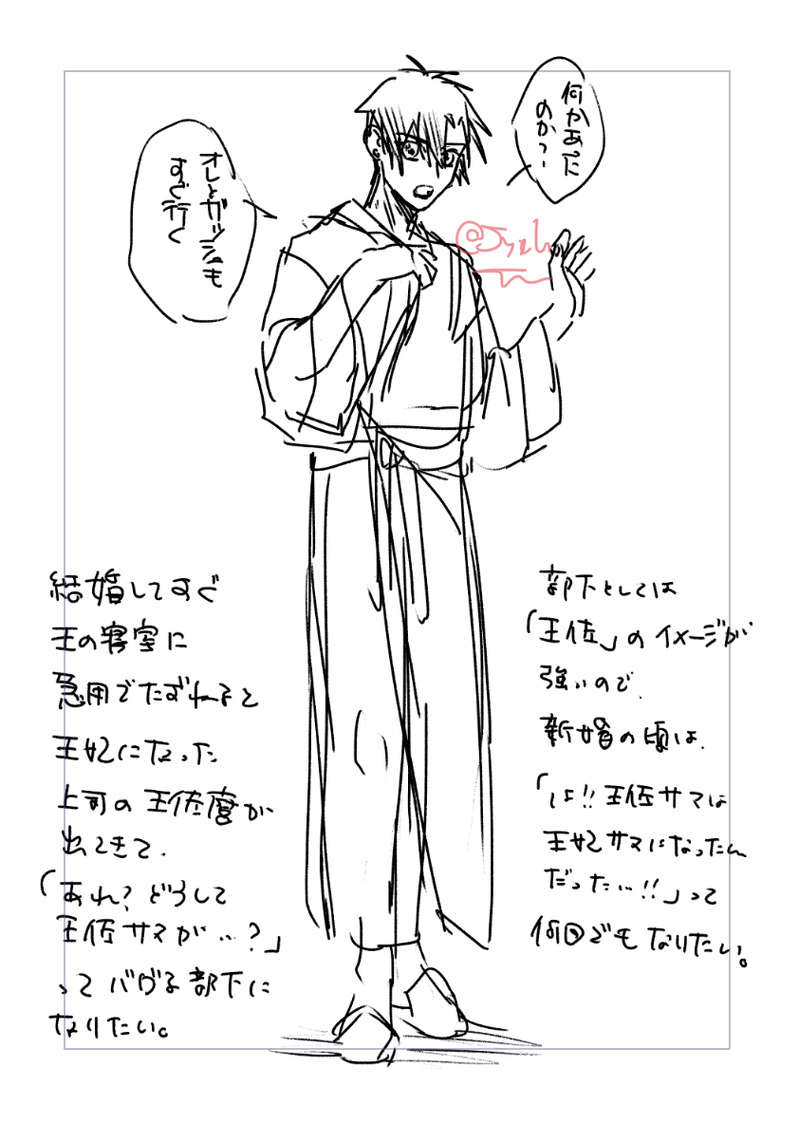 何かあった
のか？
オレとガッシュも
すぐ行く
部下としては
「王佐」のイメージが
強いので、
新婚の頃は、
「は!!王佐サマは
王妃サマになったん
だった…!!」って
何回でもなりたい。
結婚してすぐ
王の寝室に
急用でたずねると
王妃になった
上司の王佐殿が
出てきて、
「あれ？どうして
王佐サマが…？」
って バグる部下に
なりたい。